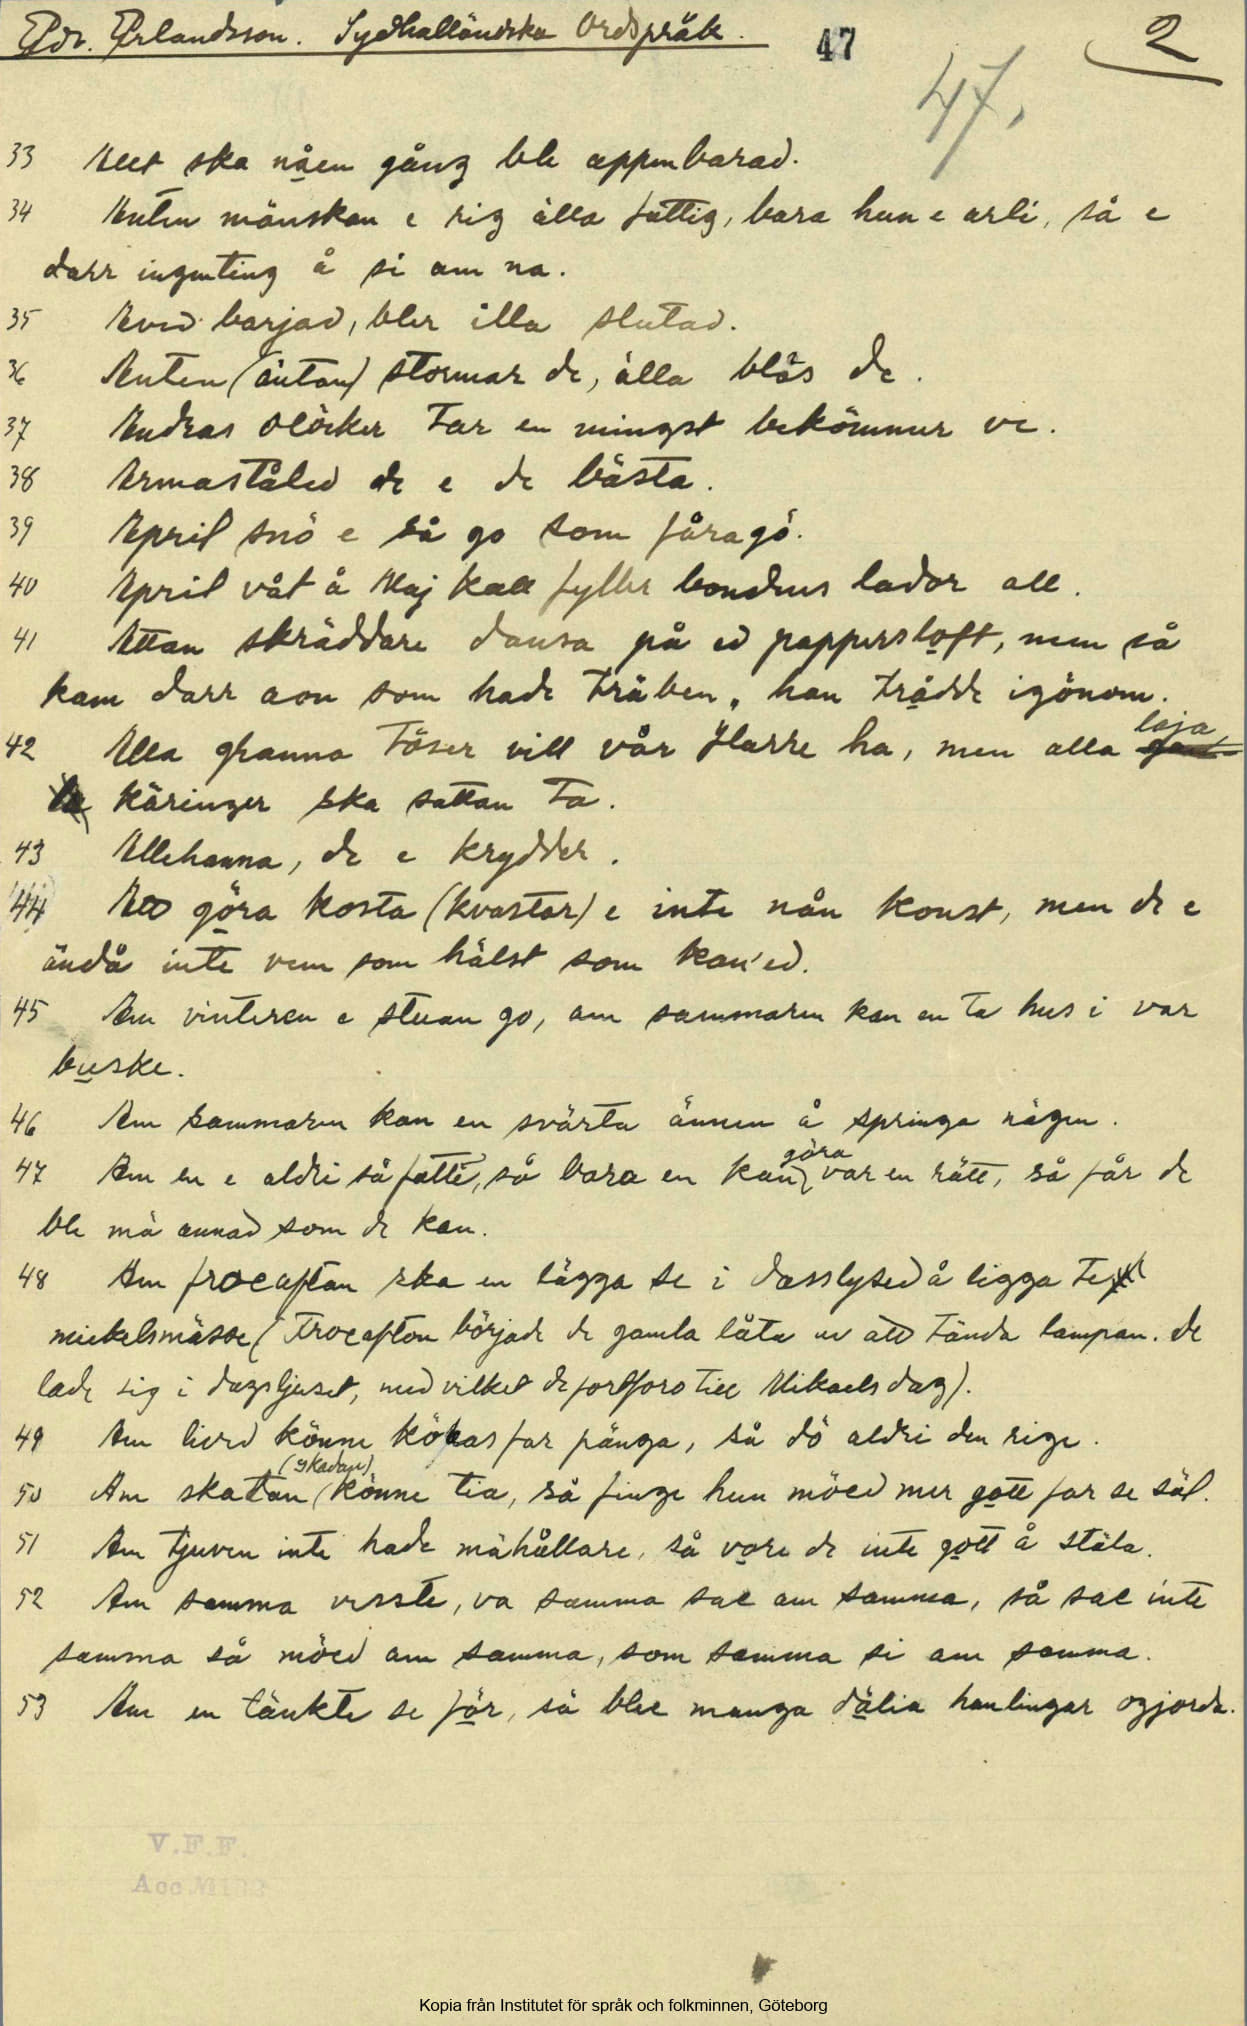 Edv. Erlandsson. Sydhalländska Ordspråk. 47 2
47.
33 Allt ska nåen gång ble åppenbarad.
34 Anten mänskan e rig älla fattig, bara hun e arli, så e
darr ingenting å si am na.
35 Aved barjad, bler illa slutad.
36 Anten (äntan) stormar de, älla blås de.
37 Andras olöcker tar en mingst bekömmer ve.
38 Armaståled de e de bästa.
39 April snö e så go som fåragö.
40 April våt å Maj kall fyller bondens lador all.
41 Attan skräddare dansa på ed pappersloft, men så
kam darr aon som hade träben, han trådde igönom.
42 Alla granna töser vill vår Harre ha, men alla leja
käringer ska sattan ta.
43 Allehanna, de e krydder.
44 Att göra kosta (kvastar) e inte nån konst, men de e
ändå inte vem som hälst som kan'ed.
45 Am vinteren e stuan go, am sammaren kan en ta hus i var
buske.
46 Am sammaren kan en svärta ännen å springa nägen.
47 Am en e aldri så fatti, så bara en kan göra var en rätt, så får de
ble mä annad som de kan.
48 Am froeaftan ska en lägga se i dasslysed å ligga te
mickelsmässe (Froeafton började de gamla låta av att tända lampan. de
lade sig i dagsljuset, med vilket de fortforo till Mikaels dag).
49 Am lived könne köbas far pänga, så dö aldri den rige.
50 Am skatan (skadan) könne tia, så finge hun möed mer gott far se säl.
51 Am tjuven inte hade mähållare, så vore de inte gott å stäla.
52 Am samma visste, va samma sae am samma, så sae inte
samma så möed am samma, som samma si am samma.
53 Am en tänkte se för, så blee manga dälia hanlingar ogjorda.
V.F.F.
Acc.
Kopia från Institutet för språk och folkminnen, Göteborg